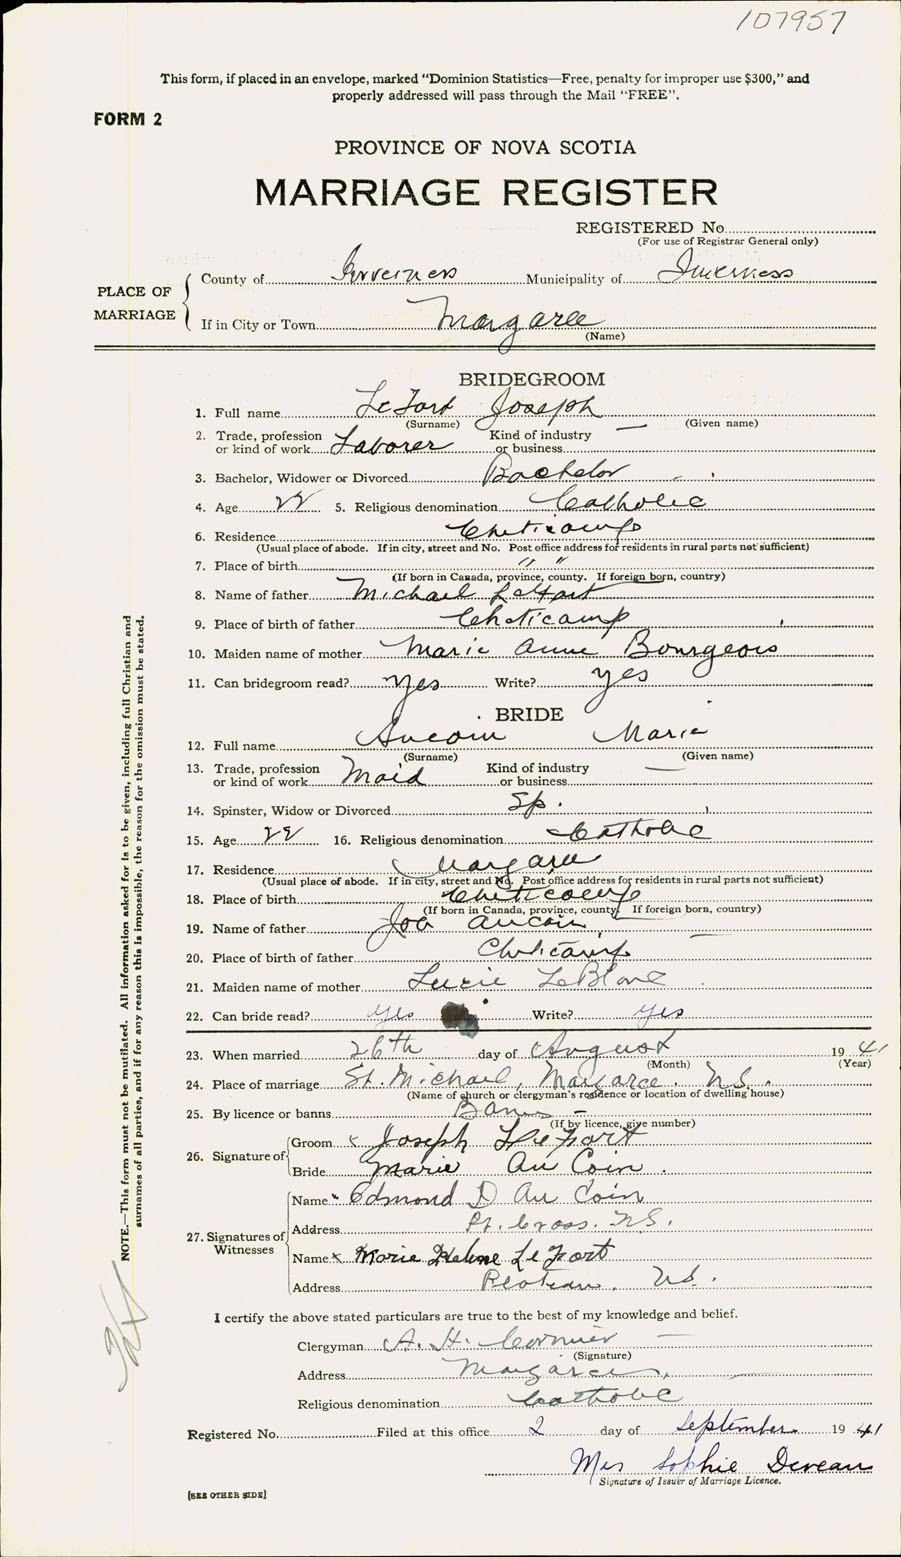 107957
This form, if placed in an envelope, marked “Dominion Statistics—Free, penalty for improper use $300,” and
properly addressed will pass through the Mail “FREE”.
FORM 2
PROVINCE OF NOVA SCOTIA
MARRIAGE REGISTER
REGISTERED No
(For use of Registrar General only)
PLACE OF MARRIAGE
County of Inverness Municipality of Inverness
If in City or Town Margaree
(Name)
BRIDEGROOM
1. Full name LeFort Joseph
(Surname) (Given name)
2. Trade, profession or kind of work Laborer Kind of industry or business —
3. Bachelor, Widower or Divorced Bachelor
4. Age 22 5. Religious denomination Catholic
6. Residence Cheticamp
(Usual place of abode. If in city, street and No. Post office address for residents in rural parts not sufficient)
7. Place of birth " "
(If born in Canada, province, county. If foreign born, country)
8. Name of father Michael LeFort
9. Place of birth of father Cheticamp
10. Maiden name of mother Marie Anne Bourgeois
11. Can bridegroom read? Yes Write? yes
BRIDE
12. Full name Aucoin Marie
(Surname) (Given name)
13. Trade, profession or kind of work Maid Kind of industry or business —
14. Spinster, Widow or Divorced Sp.
15. Age 22 16. Religious denomination Catholic
17. Residence Margaree
(Usual place of abode. If in city, street and No. Post office address for residents in rural parts not sufficient)
18. Place of birth Cheticamp
(If born in Canada, province, county. If foreign born, country)
19. Name of father Joe Aucoin
20. Place of birth of father Cheticamp
21. Maiden name of mother Lucie LeBlanc
22. Can bride read? yes Write? yes
23. When married 26th day of August 1941
(Month) (Year)
24. Place of marriage St. Michael, Margaree. N.S.
(Name of church or clergyman's residence or location of dwelling house)
25. By licence or banns Banns —
(If by licence, give number)
26. Signature of
Groom x Joseph LeFort
Bride Marie Au Coin.
27. Signatures of Witnesses
Name x Edmond D Au Coin
Address Pt. Cross. N.S.
Name x Marie Helene LeFort
Address Plateau. N.S.
I certify the above stated particulars are true to the best of my knowledge and belief.
Clergyman A. H. Cormier
(Signature)
Address Margaree
Religious denomination Catholic
Registered No. Filed at this office 2 day of September 1941
Mrs Sophie Deveau
Signature of Issuer of Marriage Licence.
[SEE OTHER SIDE]
NOTE.—This form must not be mutilated. All information asked for is to be given, including full Christian and
surnames of all parties, and if for any reason this is impossible, the reason for the omission must be stated.